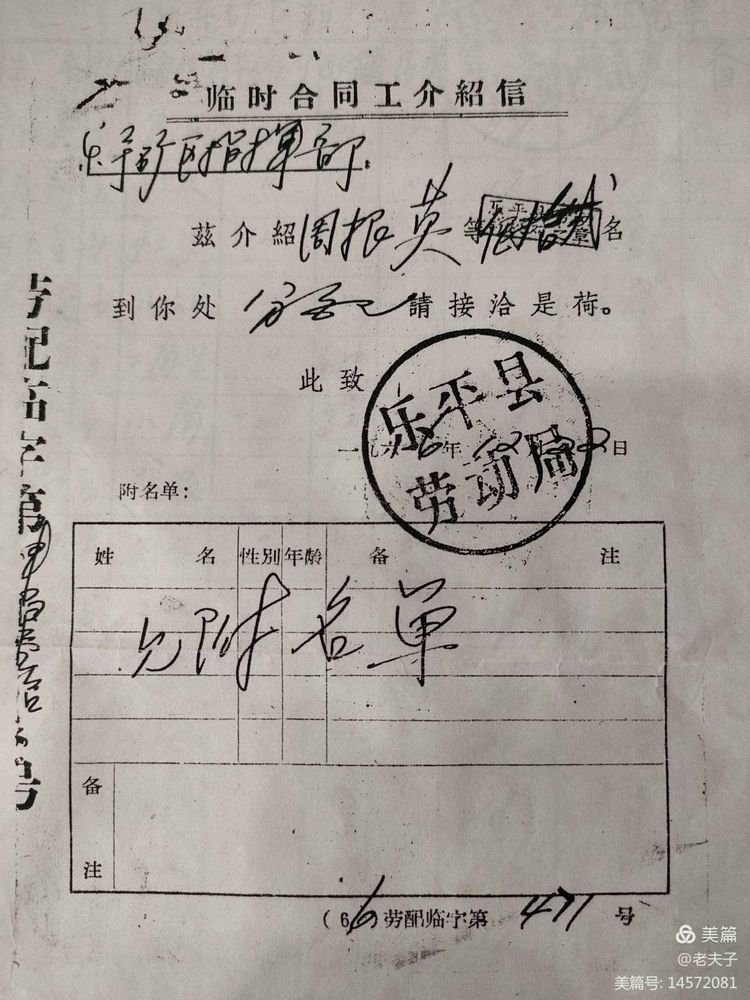 临时合同工介紹信
乐平矿区指揮部
兹介紹周根英等 名
到你处 請接洽是荷。
此致
乐平县
劳动局
一九六6年12月 日
附名单:
姓名 性别 年龄 备注
见附名单
备注
(66)劳配临字第471号
劳配临字第 号
美篇
@老夫子
美篇号: 14572081